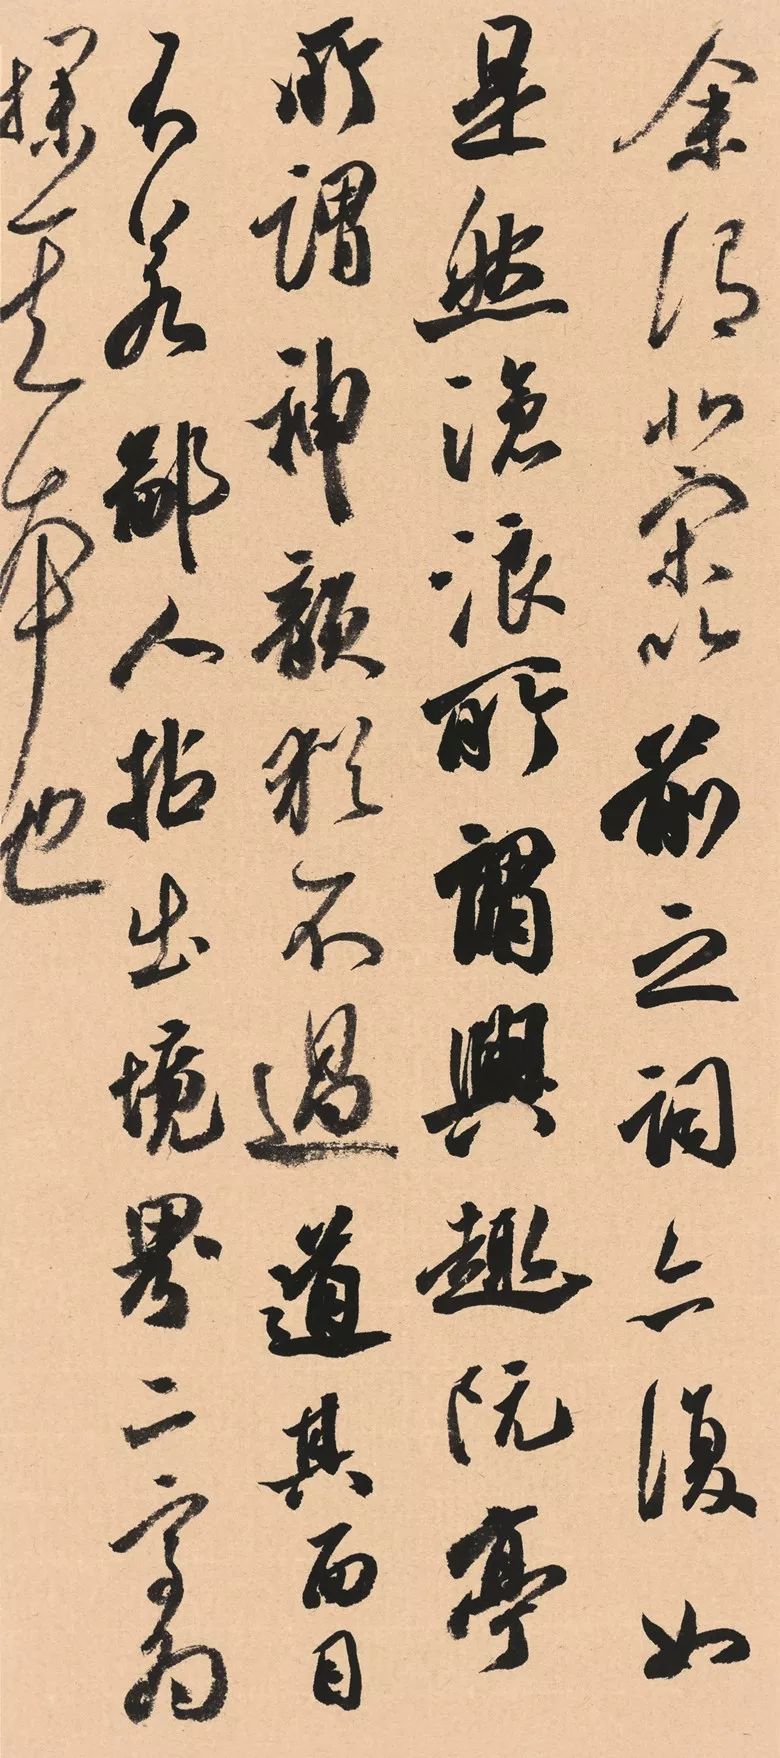 余謂北宋以前之詞亦復如
是然滄浪所謂興趣阮亭
所謂神韻猶不過道其面目
不若鄙人拈出境界二字為
探其本也